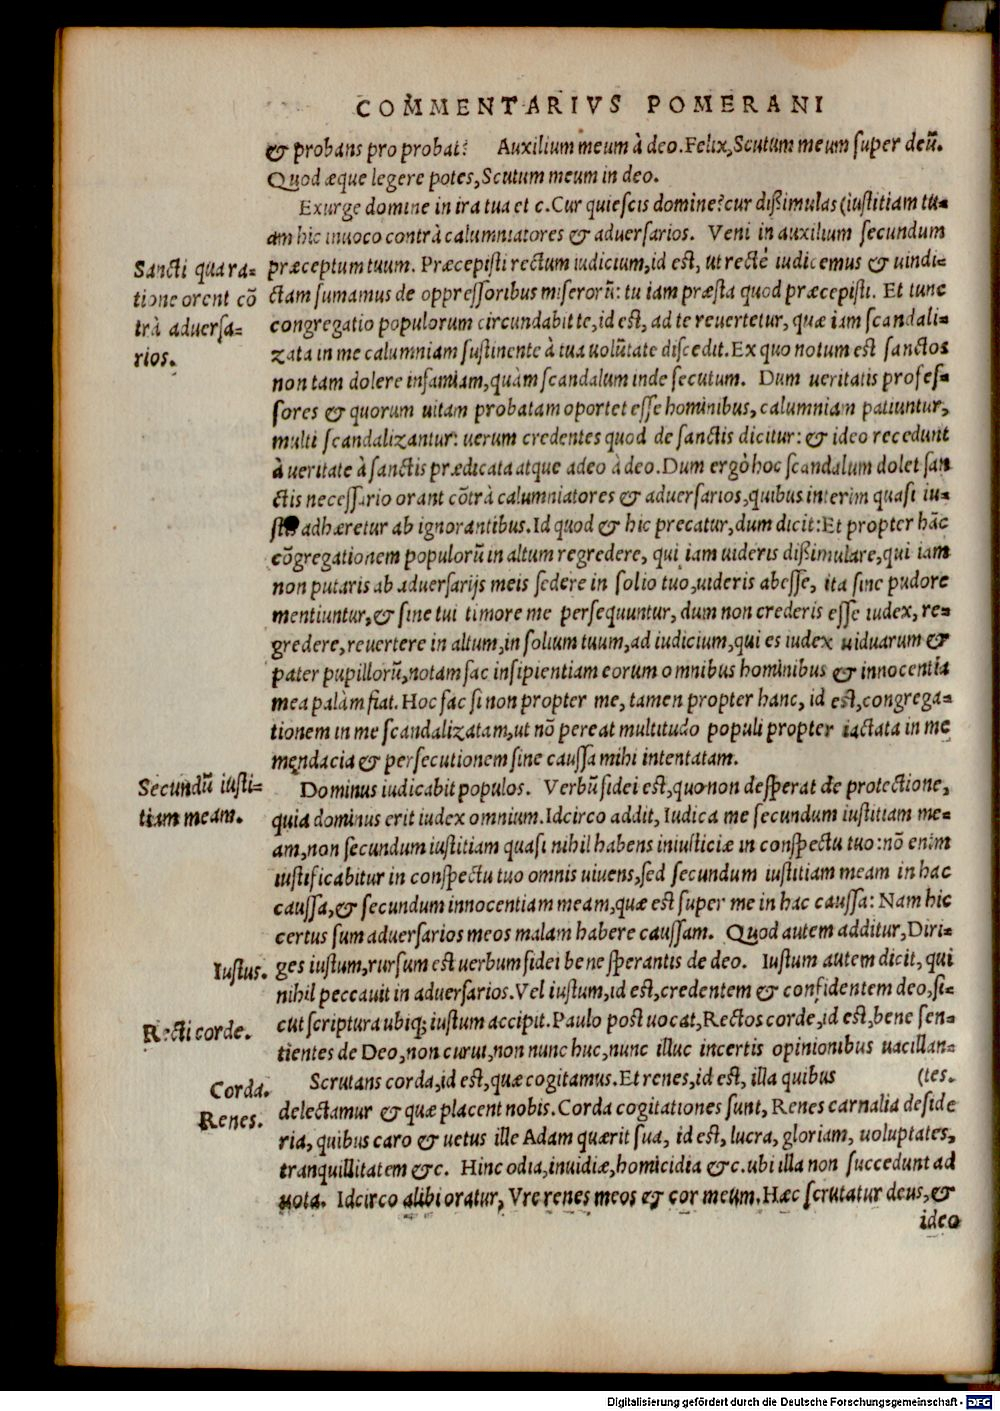 COMMENTARIVS POMERANI
& probans pro probat? Auxilium meum à deo. Felix, Scutum meum super deũ.
Quod æque legere potes, Scutum meum in deo.
Exurge domine in ira tua et c. Cur quiescis domine? cur dißimulas (iustitiam tu-
am hic inuoco contrà calumniatores & aduersarios. Veni in auxilium secundum
Sancti qua ra-
tione orent cõ
trà aduersa-
rios.
præceptum tuum. Præcepisti rectum iudicium, id est, ut rectè iudicemus & uindi-
ctam sumamus de oppressoribus miserorũ: tu iam præsta quod præcepisti. Et tunc
congregatio populorum circundabit te, id est, ad te reuertetur, quæ iam scandali-
zata in me calumniam sustinente à tua uolũtate discedit. Ex quo notum est sanctos
non tam dolere infamiam, quàm scandalum inde secutum. Dum ueritatis profes-
sores & quorum uitam probatam oportet esse hominibus, calumniam patiuntur,
multi scandalizantur: uerum credentes quod de sanctis dicitur: & ideo recedunt
à ueritate à sanctis prædicata atque adeo à deo. Dum ergò hoc scandalum dolet san
ctis necessario orant cõtrà calumniatores & aduersarios, quibus interim quasi iu-
adhæretur ab ignorantibus. Id quod & hic precatur, dum dicit: Et propter hãc
cõgregationem populorũ in altum regredere, qui iam uideris dißimulare, qui iam
non putaris ab aduersarijs meis sedere in solio tuo, uideris abesse, ita sine pudore
mentiuntur, & sine tui timore me persequuntur, dum non crederis esse iudex, re-
gredere, reuertere in altum, in solium tuum, ad iudicium, qui es iudex uiduarum &
pater pupillorũ, notam fac insipientiam eorum omnibus hominibus & innocentia
mea palàm fiat. Hoc fac si non propter me, tamen propter hanc, id est, congrega-
tionem in me scandalizatam, ut nõ pereat multitudo populi propter iactata in me
mendacia & persecutionem sine caussa mihi intentatam.
Secundũ iusti-
tiam meam.
Dominus iudicabit populos. Verbũ fidei est, quo non desperat de protectione,
quia dominus erit iudex omnium. Idcirco addit, Iudica me secundum iustitiam me-
am, non secundum iustitiam quasi nihil habens iniusticiæ in conspectu tuo: nõ enim
iustificabitur in conspectu tuo omnis uiuens, sed secundum iustitiam meam in hac
caussa, & secundum innocentiam meam, quæ est super me in hac caussa: Nam hic
certus sum aduersarios meos malam habere caussam. Quod autem additur, Diri-
Iustus.
ges iustum, rursum est uerbum fidei bene sperantis de deo. Iustum autem dicit, qui
nihil peccauit in aduersarios. Vel iustum, id est, credentem & confidentem deo, si-
Recti corde.
cut scriptura ubiq; iustum accipit. Paulo post uocat, Rectos corde, id est, bene sen-
tientes de Deo, non curui, non nunc huc, nunc illuc incertis opinionibus uacillan-
Corda.
Scrutans corda, id est, quæ cogitamus. Et renes, id est, illa quibus (tes.
Renes.
delectamur & quæ placent nobis. Corda cogitationes sunt, Renes carnalia deside
ria, quibus caro & uetus ille Adam quærit sua, id est, lucra, gloriam, uoluptates,
tranquillitatem &c. Hinc odia, inuidiæ, homicidia &c. ubi illa non succedunt ad
uota. Idcirco alibi oratur, Vre renes meos & cor meum. Hæc scrutatur deus, &
ideo
Digitalisierung gefördert durch die Deutsche Forschungsgemeinschaft - DFG